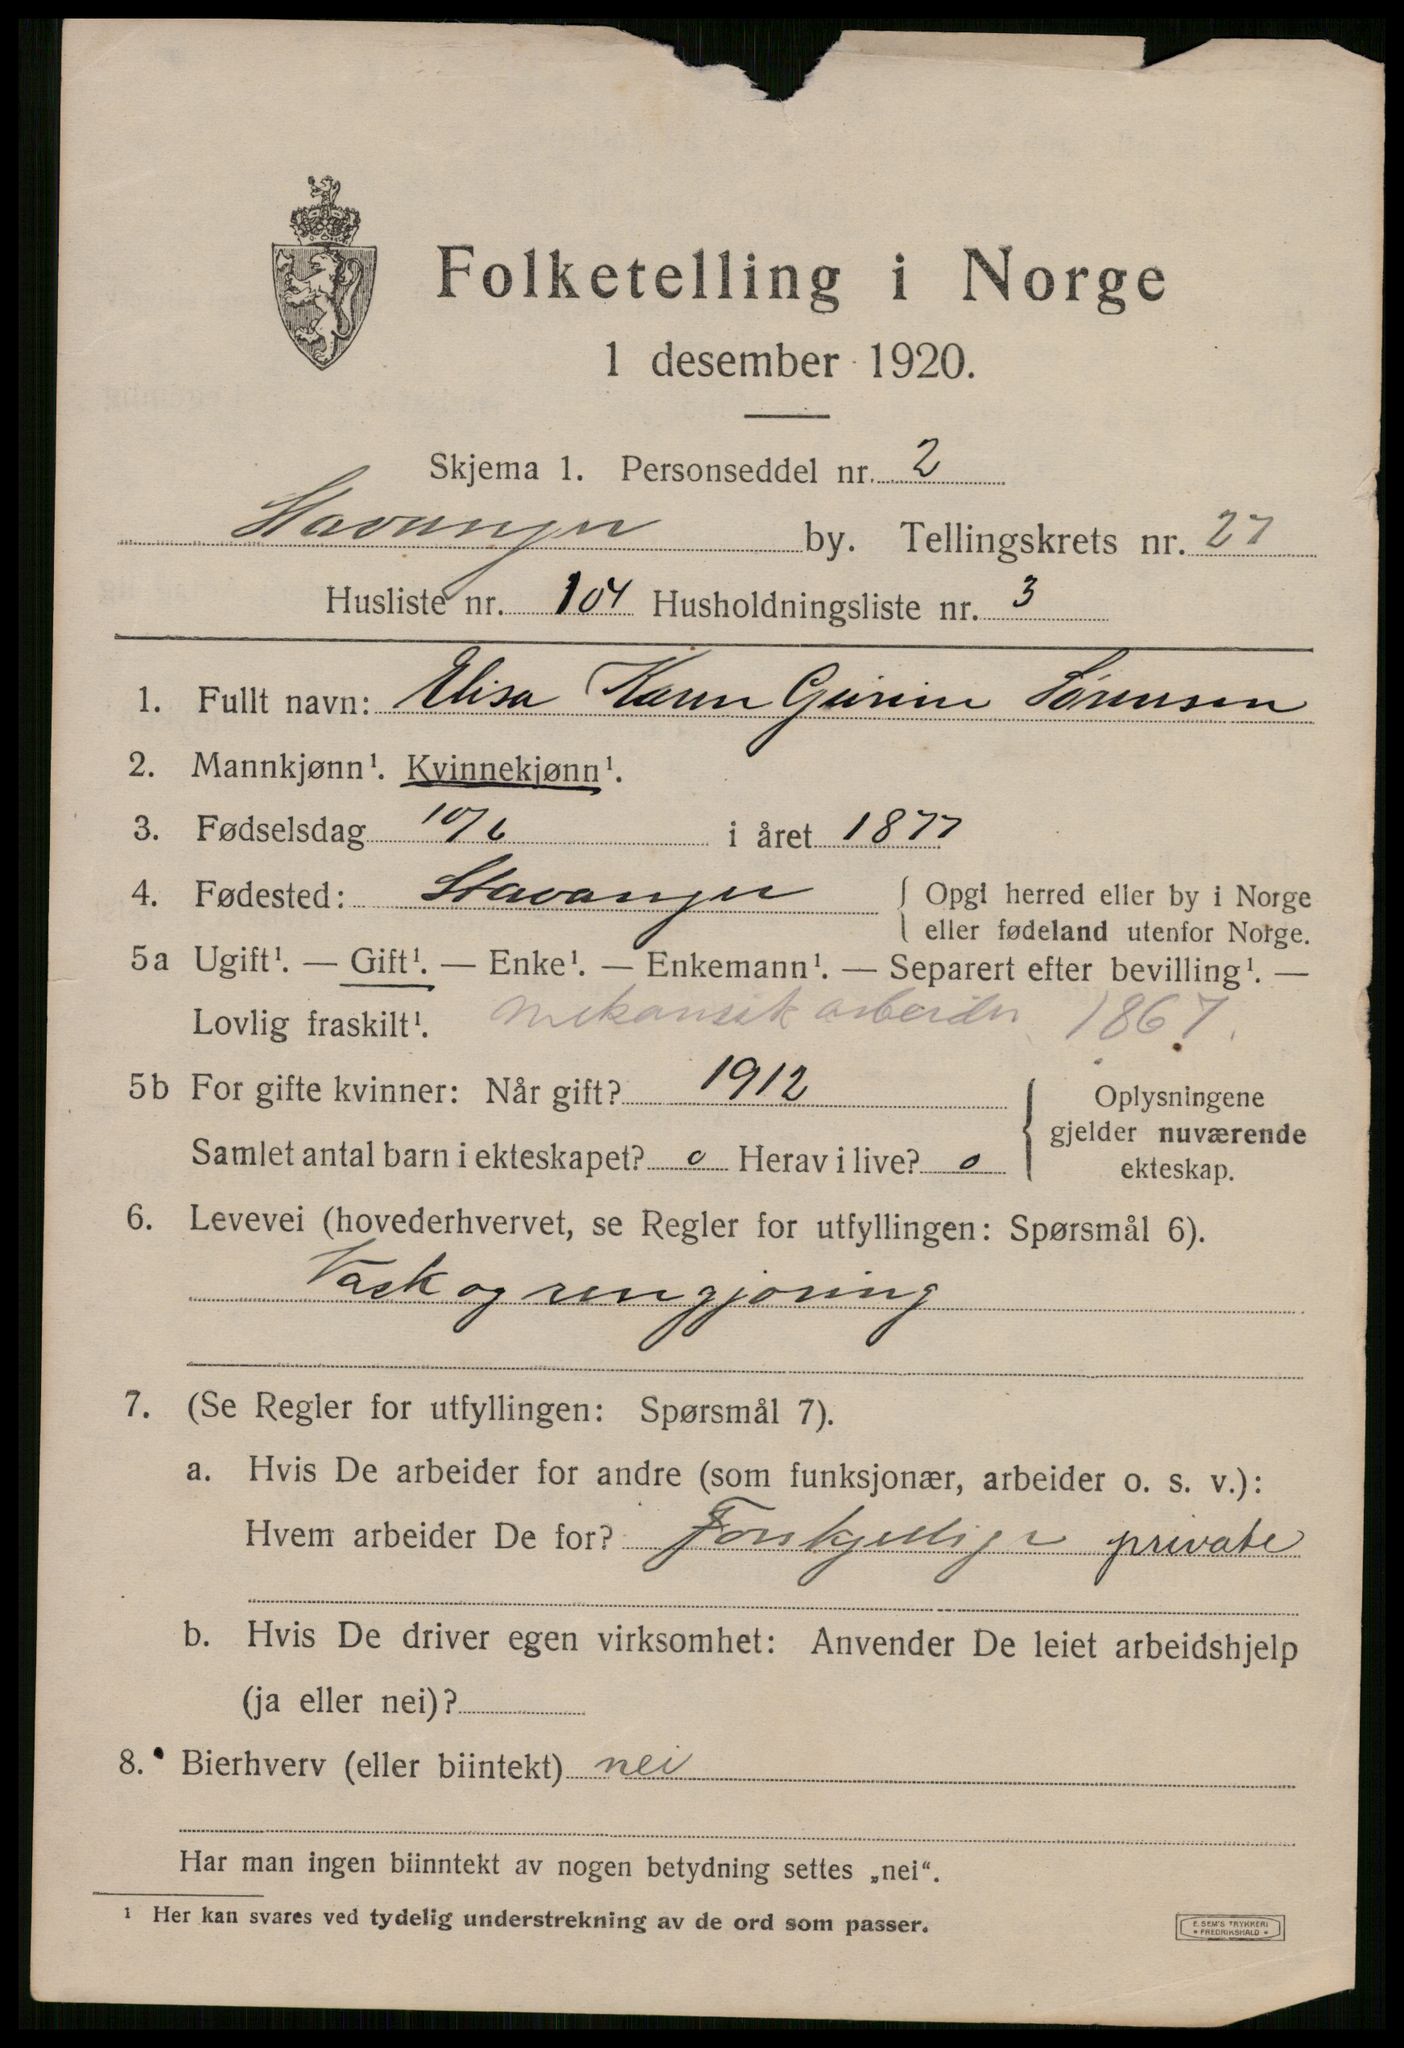 Folketelling i Norge
1 desember 1920.
Skjema 1. Personseddel nr. 2
Stavanger by. Tellingskrets nr. 27
Husliste nr. 104 Husholdningsliste nr. 3
1. Fullt navn: Elisa Karen Gurine Sørensen
2. Mannkjønn¹. Kvinnekjønn¹.
3. Fødselsdag 10/6 i året 1877
4. Fødested: Stavanger { Opgi herred eller by i Norge
eller fødeland utenfor Norge.
5a Ugift¹. — Gift¹. — Enke¹. — Enkemann¹. — Separert efter bevilling¹. —
Lovlig fraskilt¹. mekanisk arbeider 1867.
5b For gifte kvinner: Når gift? 1912 { Oplysningene
gjelder nuværende
ekteskap.
Samlet antal barn i ekteskapet? 0 Herav i live? 0
6. Levevei (hovederhvervet, se Regler for utfyllingen: Spørsmål 6).
Vask og rengjøring
7. (Se Regler for utfyllingen: Spørsmål 7).
a. Hvis De arbeider for andre (som funksjonær, arbeider o. s. v.):
Hvem arbeider De for? Forskjellige private
b. Hvis De driver egen virksomhet: Anvender De leiet arbeidshjelp
(ja eller nei)?
8. Bierhverv (eller biintekt) nei
Har man ingen biinntekt av nogen betydning settes „nei“.
¹ Her kan svares ved tydelig understrekning av de ord som passer.
E. SEM'S TRYKKERI
* FREDRIKSHALD *